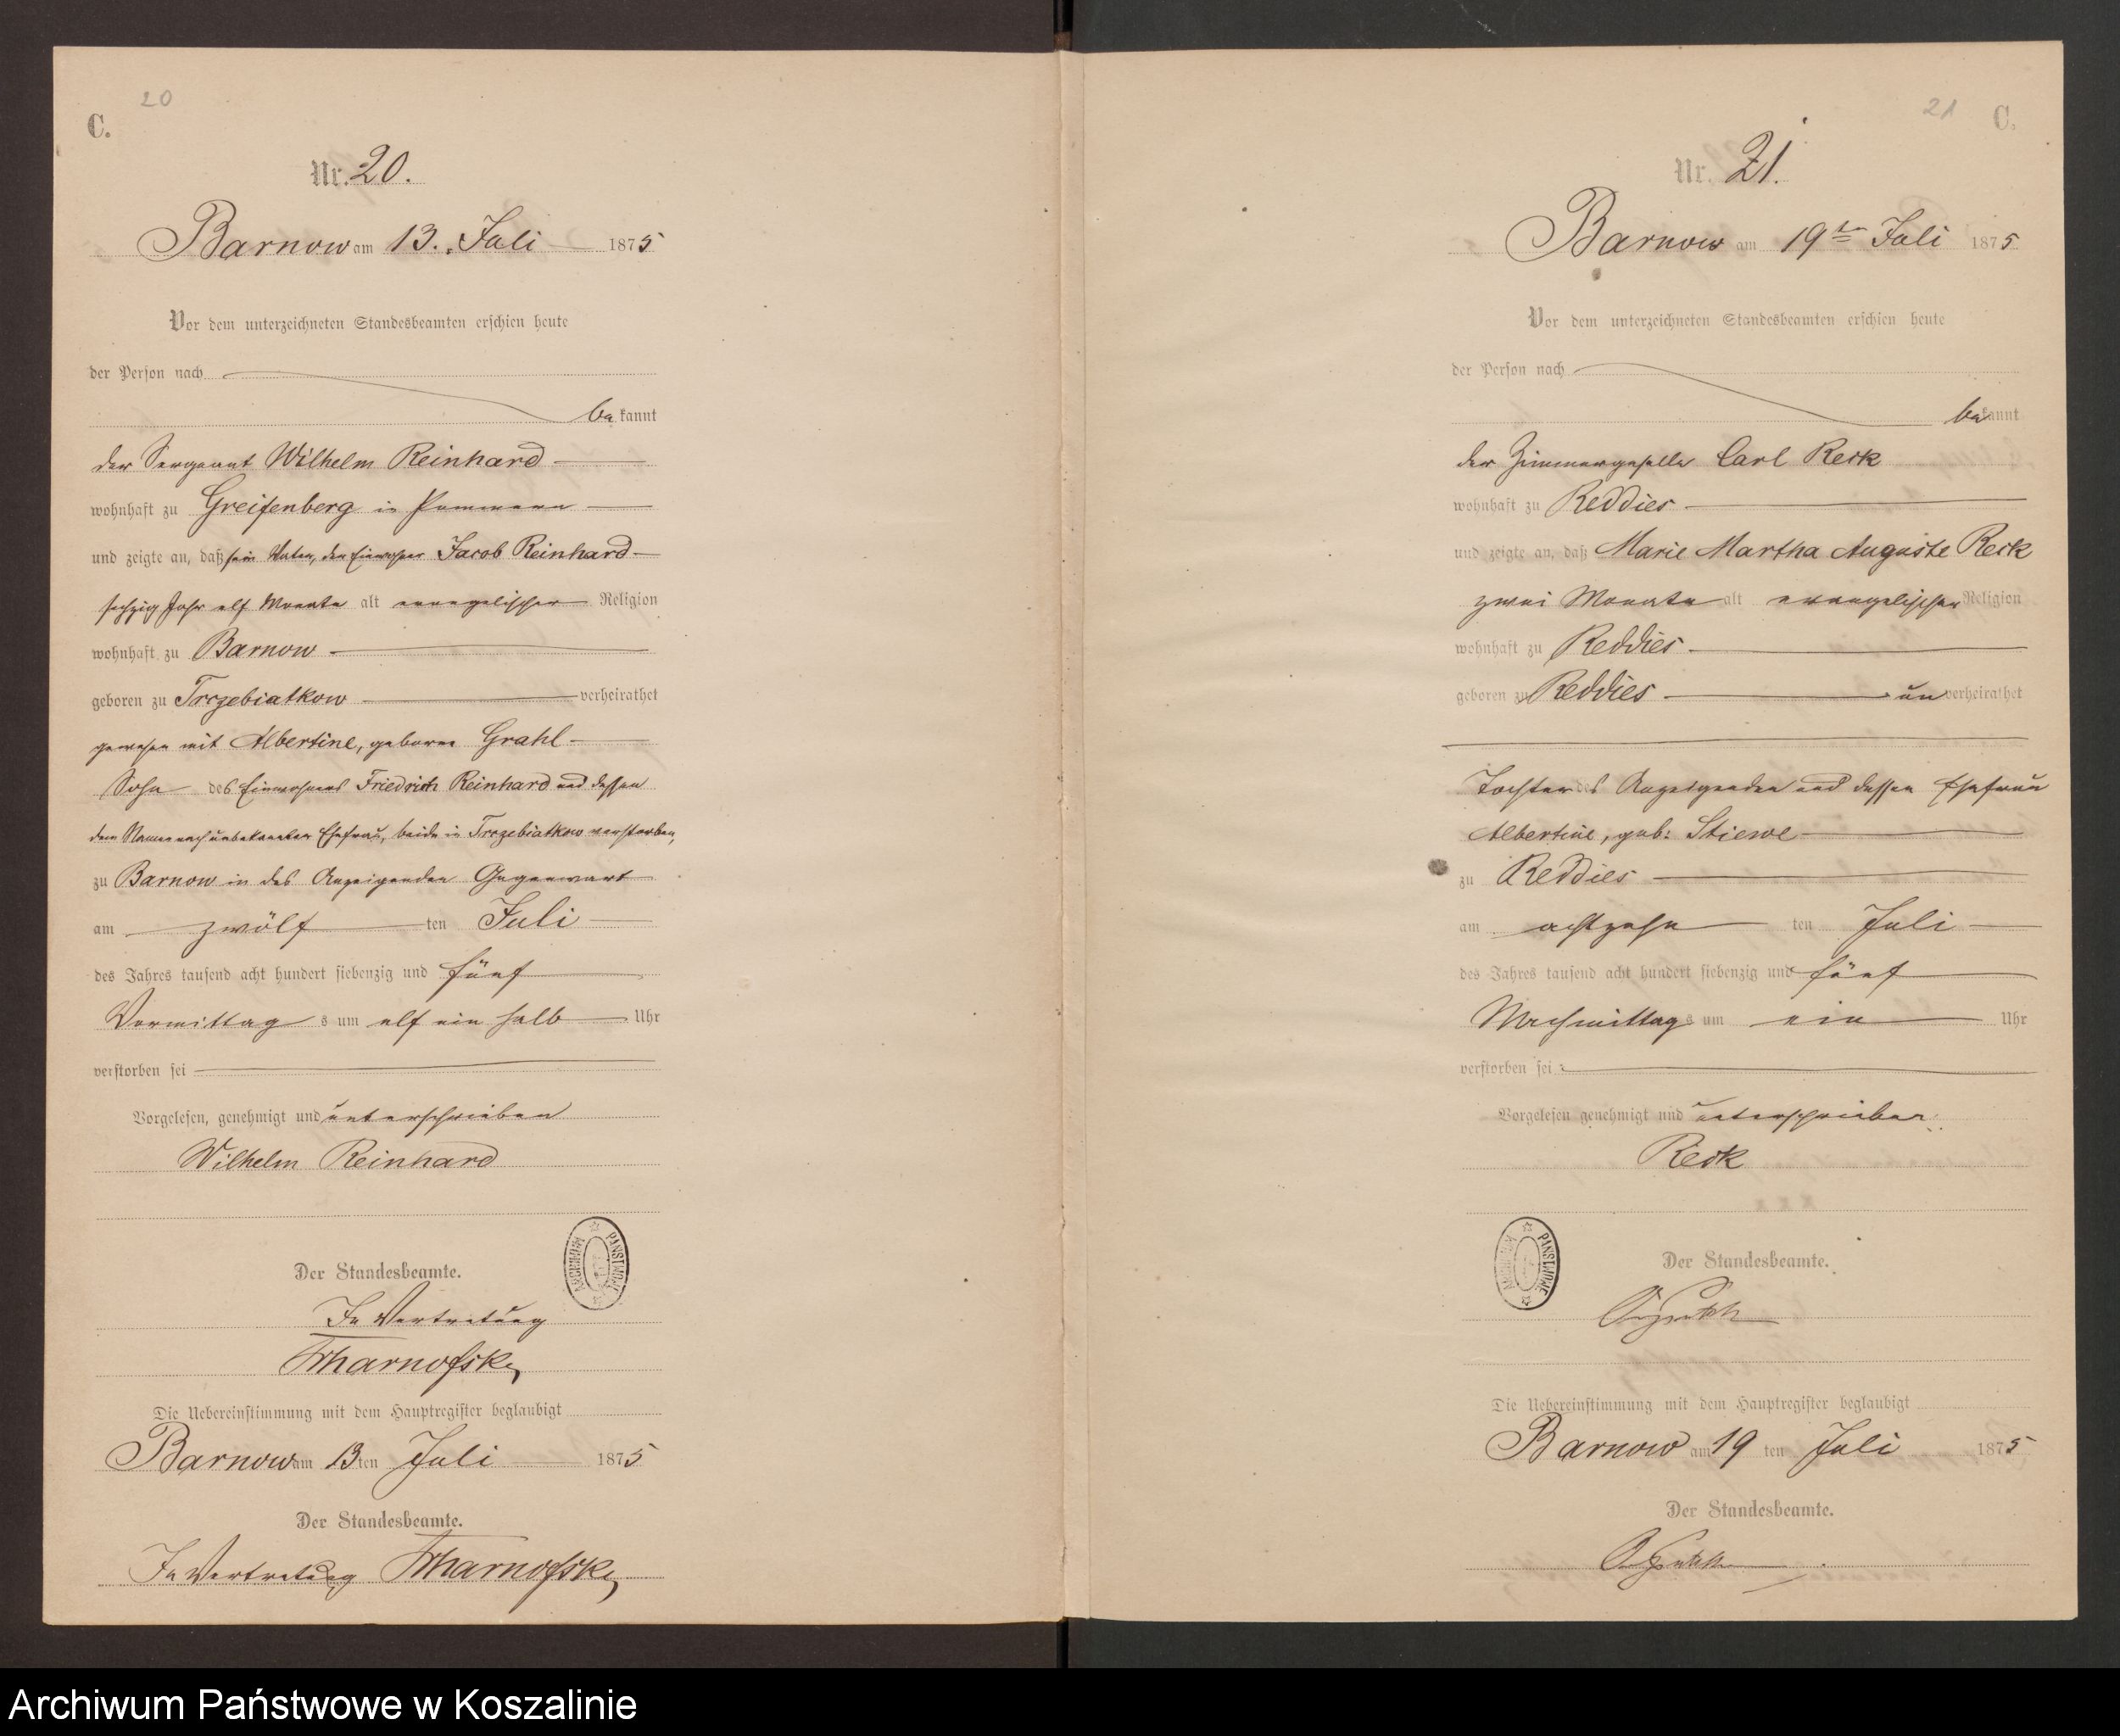 20
C.
Nr. 20.
Barnow am 13. Juli 1875
Vor dem unterzeichneten Standesbeamten erschien heute
der Person nach
bekannt
der Sergeant Wilhelm Reinhard
wohnhaft zu Greifenberg in Pommern
und zeigte an, daß sein Vater, der Einwohner Jacob Reinhard
sechzig Jahr elf Monate alt evangelischer Religion
wohnhaft zu Barnow
geboren zu Trrzebiatkow verheirathet
gewesen mit Albertine, geborne Grahl
Sohn des Einwohners Friedrich Reinhard und dessen
dem Namen nach unbekannten Ehefrau, beide in Trrzebiatkow verstorben,
zu Barnow in des Anzeigenden Gegenwart
am zwölf ten Juli
des Jahres tausend acht hundert siebenzig und fünf
Vormittag s um elf ein halb Uhr
verstorben sei
Vorgelesen, genehmigt und unterschrieben
Wilhelm Reinhard
ARCHIWUM PAŃSTWOWE
Der Standesbeamte.
In Vertretung
Die Uebereinstimmung mit dem Hauptregister beglaubigt
Barnow am 13 ten Juli 1875
Der Standesbeamte.
In Vertretung
21
C.
Nr. 21.
Barnow am 19ten Juli 1875
Vor dem unterzeichneten Standesbeamten erschien heute
der Person nach
bekannt
der Zimmergeselle Carl Reck
wohnhaft zu Reddies
und zeigte an, daß Marie Martha Auguste Reck
zwei Monate alt evangelischer Religion
wohnhaft zu Reddies
geboren zu Reddies unverheirathet
Tochter des Anzeigenden und dessen Ehefrau
Albertine, geb: Stiewe
zu Reddies
am achtzehn ten Juli
des Jahres tausend acht hundert siebenzig und fünf
Nachmittag s um ein Uhr
verstorben sei
Vorgelesen genehmigt und unterschrieben
Reck
PAŃSTWOWE
Der Standesbeamte.
Die Uebereinstimmung mit dem Hauptregister beglaubigt
Barnow am 19 ten Juli 1875
Der Standesbeamte.
Archiwum Państwowe w Koszalinie